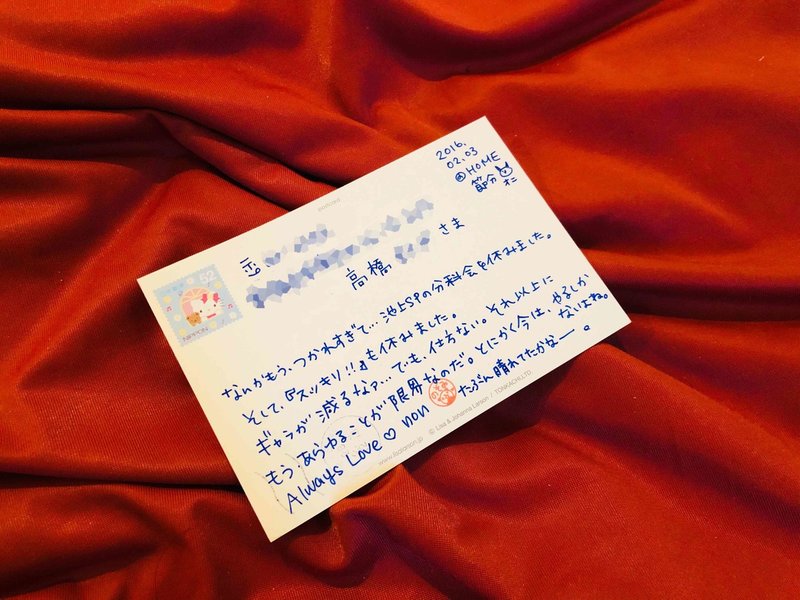 2016.
02.03
@HOME
節分
postcard
52
NIPPON
〒
高橋 さま
なんかもう、つかれすぎて…池上SPの分科会を休みました。
そして、『スッキリ!!』も休みました。
ギャラが減るなァ…でも、仕方ない。それ以上に
もう、あらゆることが限界なのだ。とにかく今は、やるしか
ないよね。
Always Love♡non たぶん晴れてたかなー。
www.lisalarson.jp © Lisa & Johanna Larson / TONKACHI,LTD